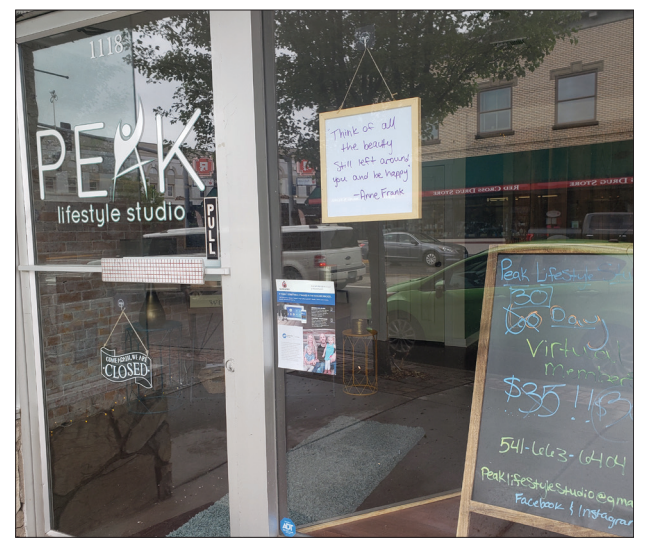 1118
PEAK
lifestyle studio
PULL
COME AGAIN, WE ARE
CLOSED
"Think of all
the beauty
Still left around
you and be happy"
-Anne Frank
RED CROSS DRUG STORE
DRUG STORE
ADT
Peak Lifestyle
30
60 Day
Virtual
member
$35!!
541-663-6404
Peaklifestylestudio@gma
Facebook & Instagram